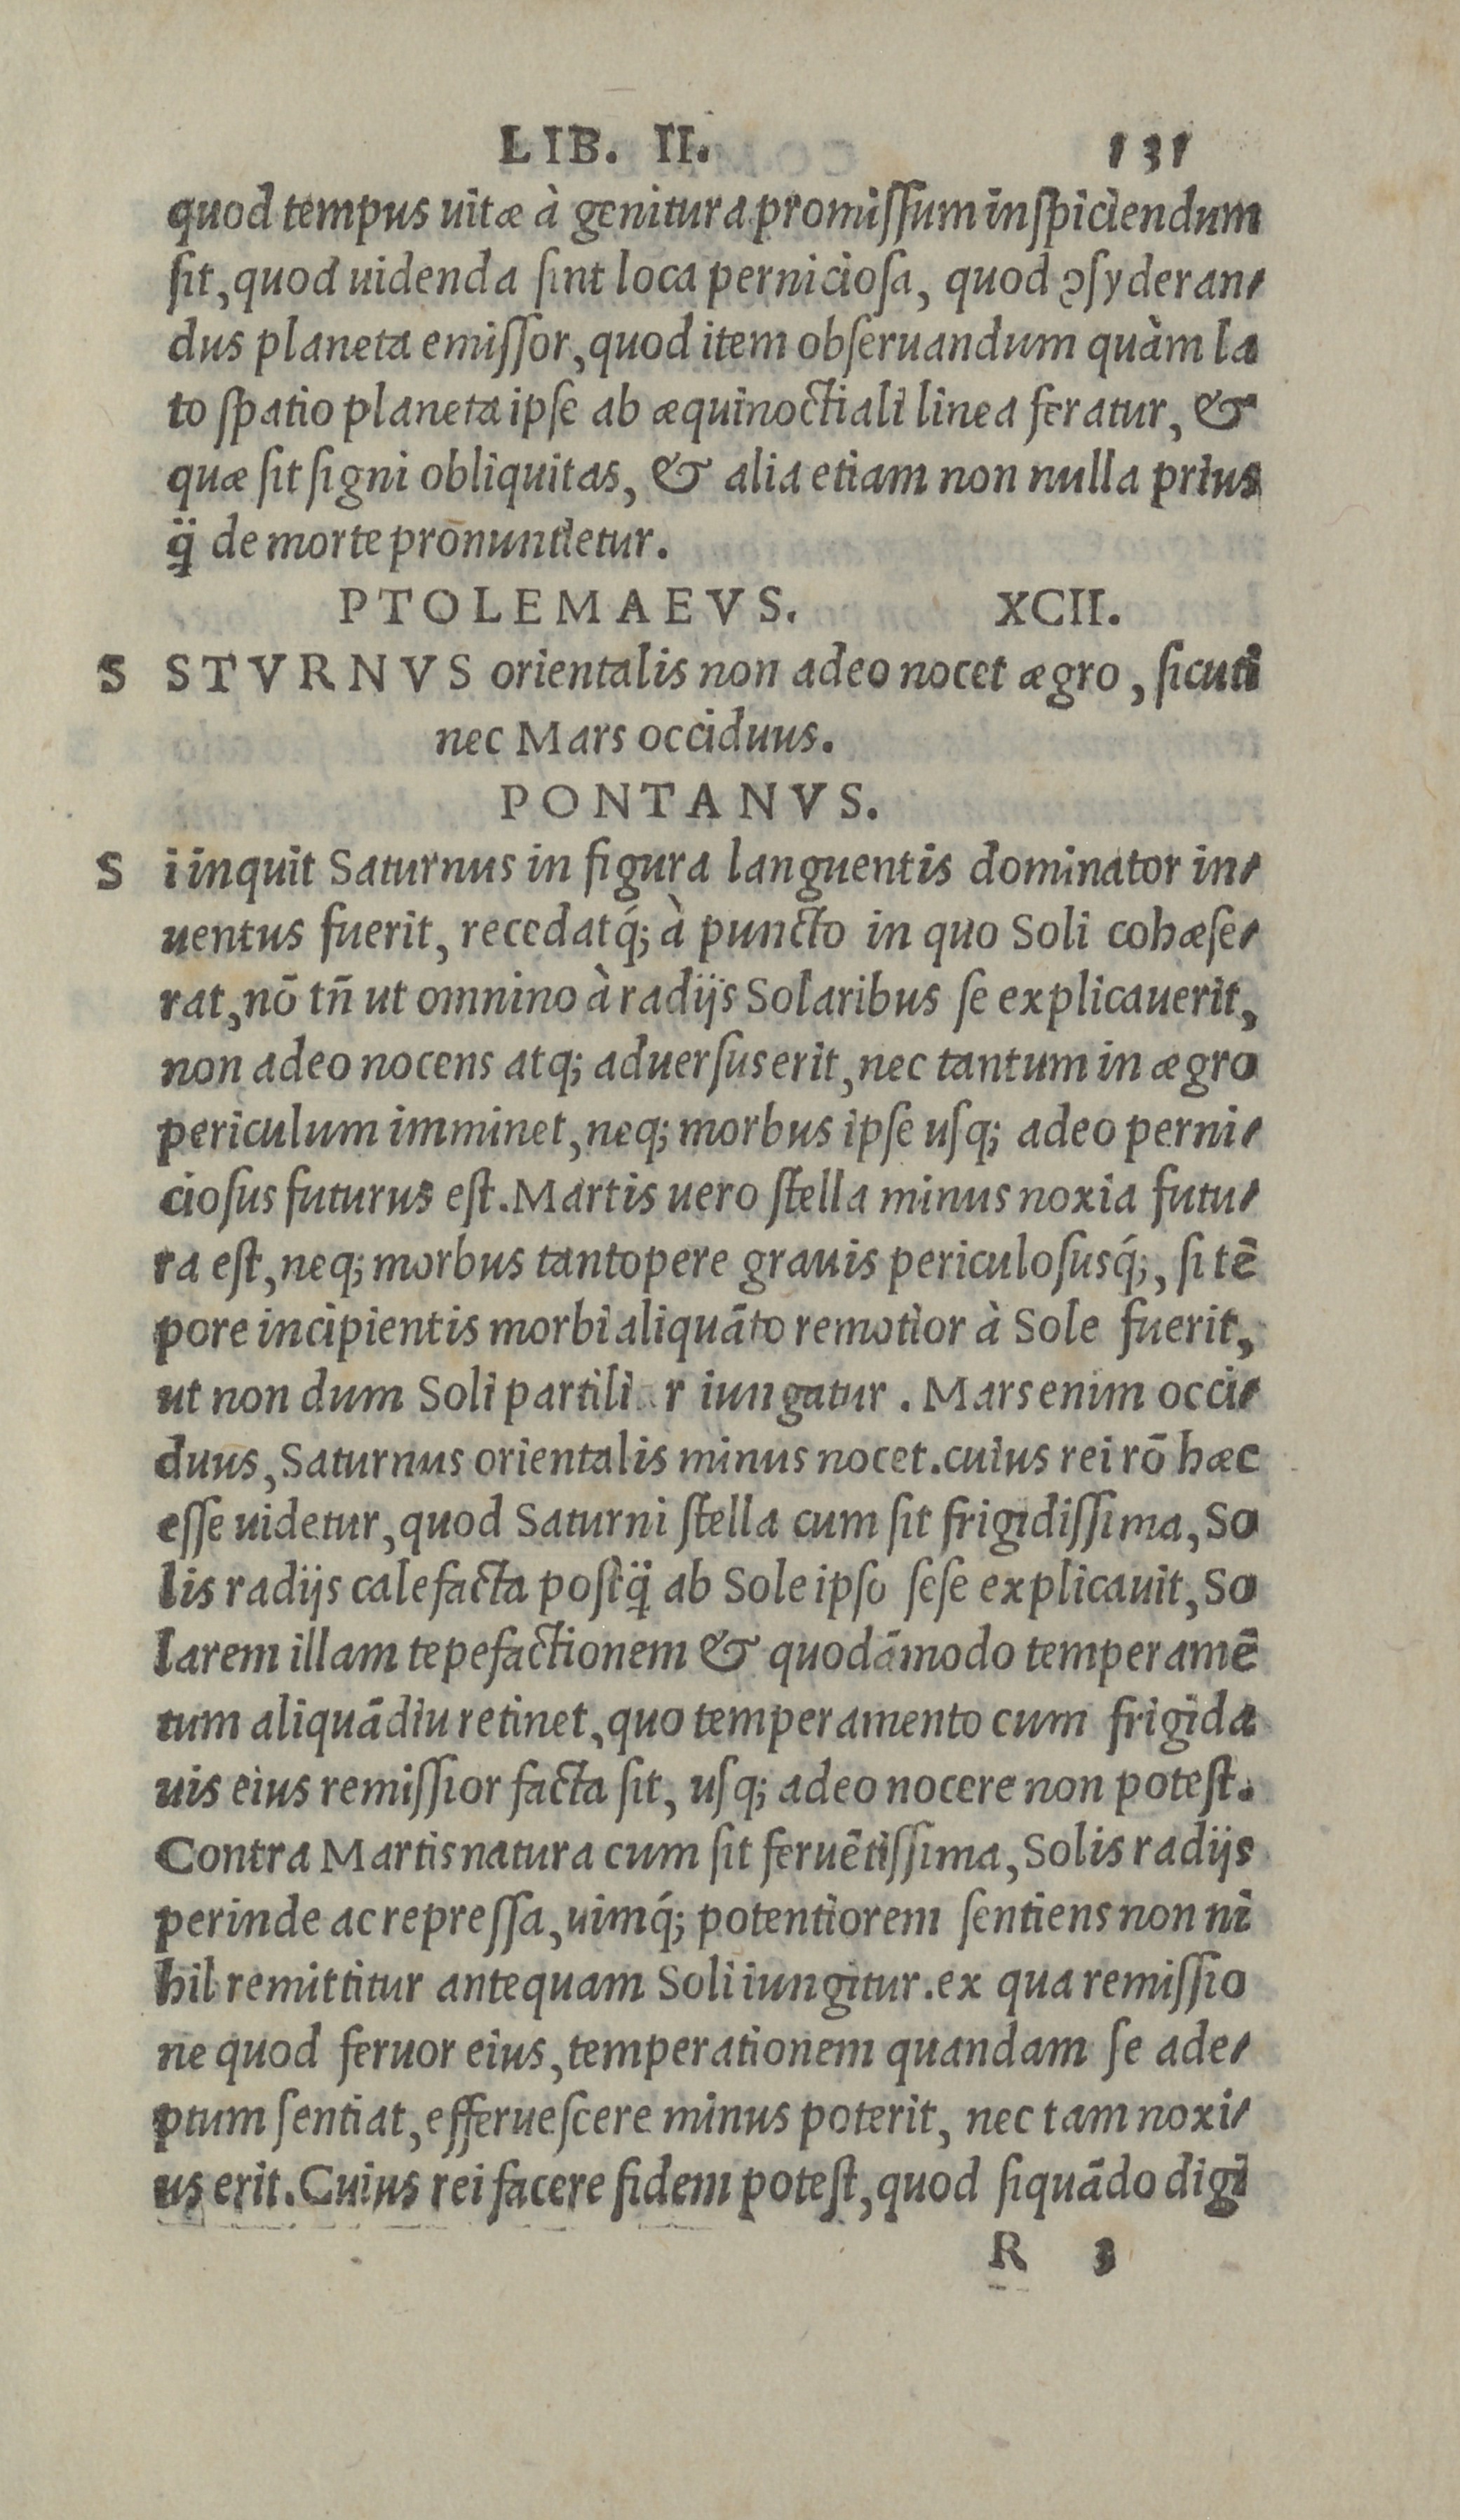 LIB. II. 131
quod tempus uitæ à genitura promiſſum inſpiciendum
ſit, quod uidenda ſint loca pernicioſa, quod ꝯſyderan-
dus planeta emiſſor, quod item obſeruandum quàm la
to ſpatio planeta ipſe ab æquinoctiali linea feratur, &
quæ ſit ſigni obliquitas, & alia etiam non nulla prius
q̈ de morte pronuntietur.
PTOLEMAEVS. XCII.
S STVRNVS orientalis non adeo nocet ægro, ſicuti
nec Mars occiduus.
PONTANVS.
S i inquit Saturnus in figura languentis dominator in-
uentus fuerit, recedatq́; à puncto in quo Soli cohæſe-
rat, nō tñ ut omnino à radijs Solaribus ſe explicauerit,
non adeo nocens atq; aduerſus erit, nec tantum in ægro
periculum imminet, neq; morbus ipſe uſq; adeo perni-
cioſus futurus eſt. Martis uero ſtella minus noxia futu-
ra eſt, neq; morbus tantopere grauis periculoſusq́;, ſi tē
pore incipientis morbi aliquāto remotior à Sole fuerit,
ut non dum Soli partili r iungatur. Mars enim occi-
duus, Saturnus orientalis minus nocet. cuius rei rō hæc
eſſe uidetur, quod Saturni ſtella cum ſit frigidiſſima, So
lis radijs calefacta poſtq̈ ab Sole ipſo ſeſe explicauit, So
larem illam tepefactionem & quodāmodo temperamē
tum aliquādiu retinet, quo temperamento cum frigida
uis eius remiſſior facta ſit, uſq; adeo nocere non poteſt.
Contra Martis natura cum ſit feruētiſſima, Solis radijs
perinde ac repreſſa, uimq́; potentiorem ſentiens non ni
hil remittitur antequam Soli iungitur. ex qua remiſſio
ne quod feruor eius, temperationem quandam ſe ade-
ptum ſentiat, efferueſcere minus poterit, nec tam noxi-
us erit. Cuius rei facere fidem poteſt, quod ſiquādo digi
R 3